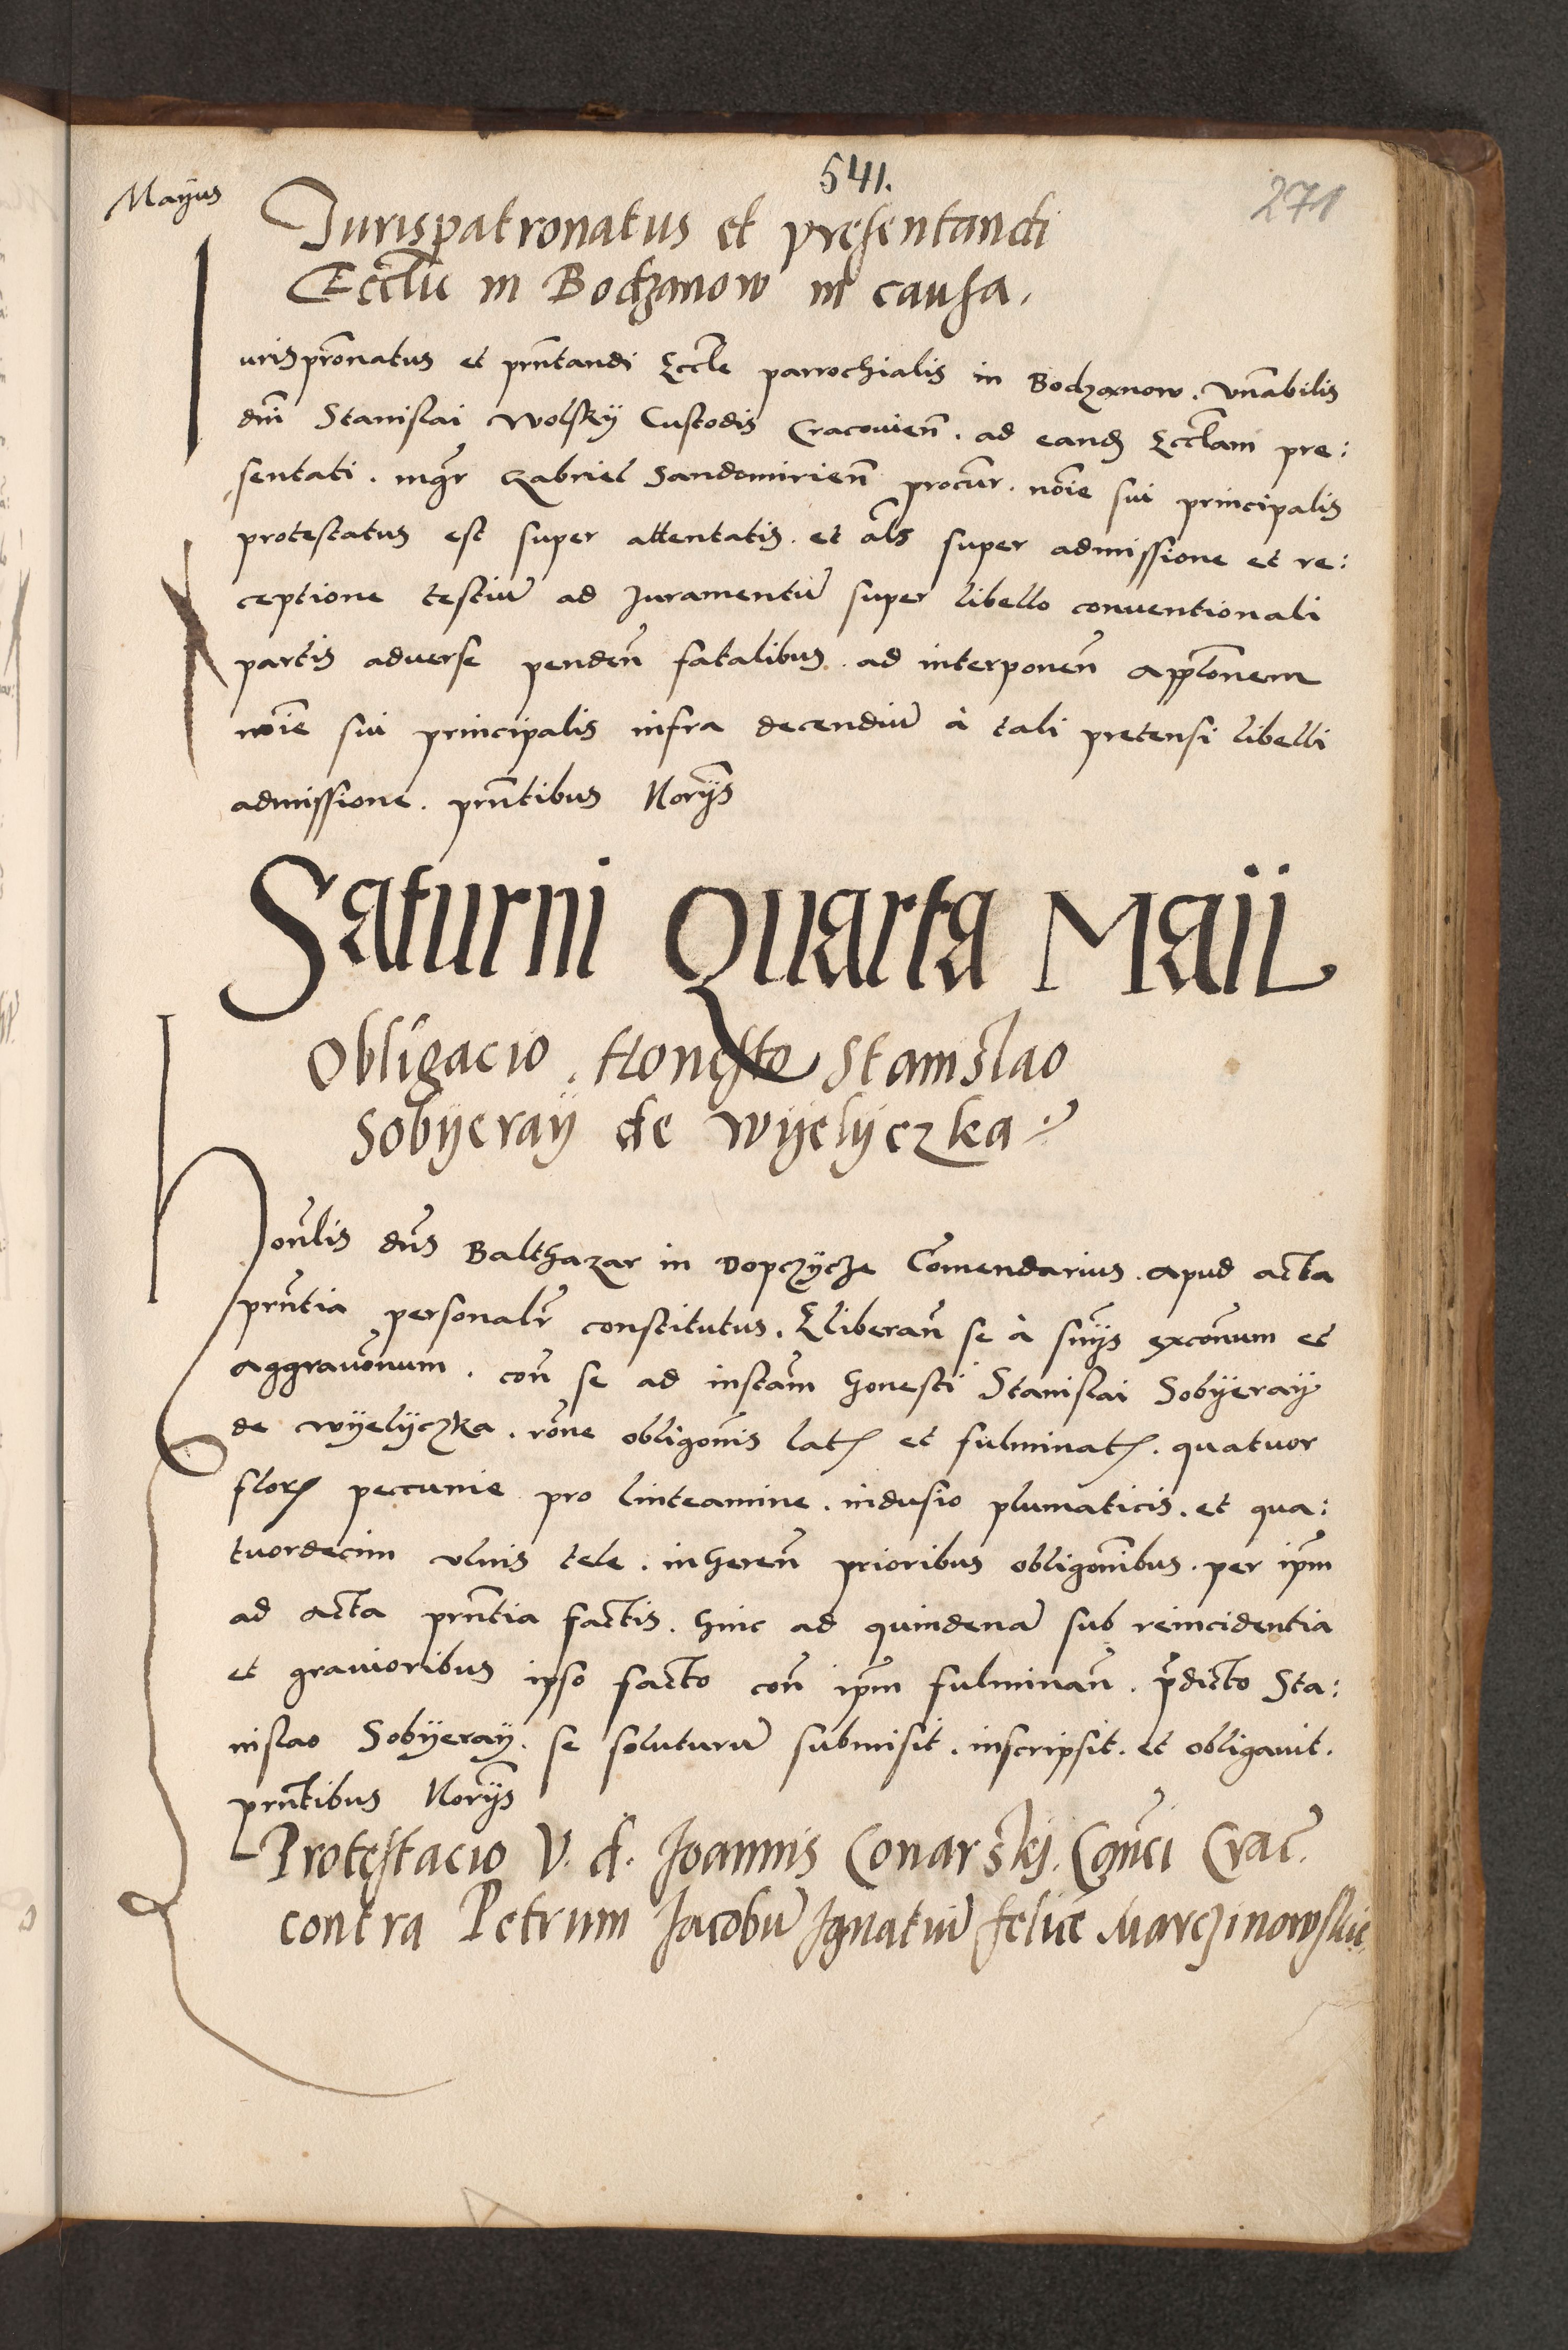 541.
271
Mayus
Jurispatronatus et presentandi
Ecclie in Bodzanow in causa.
Jurispronatus et prntandi Eccle parrochialis in Bodzanow. vnabilis
dni Stanislai Wolsky Custodis Cracovien. ad eand Ecclam pre:
sentati. mgr Gabriel Sandomirien procur. noie sui principalis
protestatus est super attentatis. et als super admissione et re:
ceptione testiu ad Juramentu super libello conventionali
partis adverse penden fatalibus. ad interponen applonem
noie sui principalis infra decendiu à tali pretensi libelli
admissione. prntibus Norijs
Saturni Quarta Maii
Obligacio. Honesto Stanislao
Sobyeray de Wyelyczka
honlis dns Balthazar in Dopczycze Comendarius. apud acta
prntia personalr constitutus. Et liberan se à snijs exconum et
aggravonum. con se ad instam honesti Stanislai Sobyeray
de Wyelyczka. rone obligonis lat et fulminat. quatuor
flor peccunie pro linteamine. indusio plumaticis. et qua:
tuordecim ulnis tele. inheren prioribus obligonibus. per ipm
ad acta prntia factis. hinc ad quindena sub reincidentia
et gravioribus ipso facto con ipm fulminan. pdicto Sta:
nislao Sobyeray. se soluturu submisit. inscripsit. et obligavit.
prntibus Norijs
Protestacio V. d. Joannis Conarskj. Canci Crac.
contra Petrum Jacobu Ignatiu felice Marczinowskie